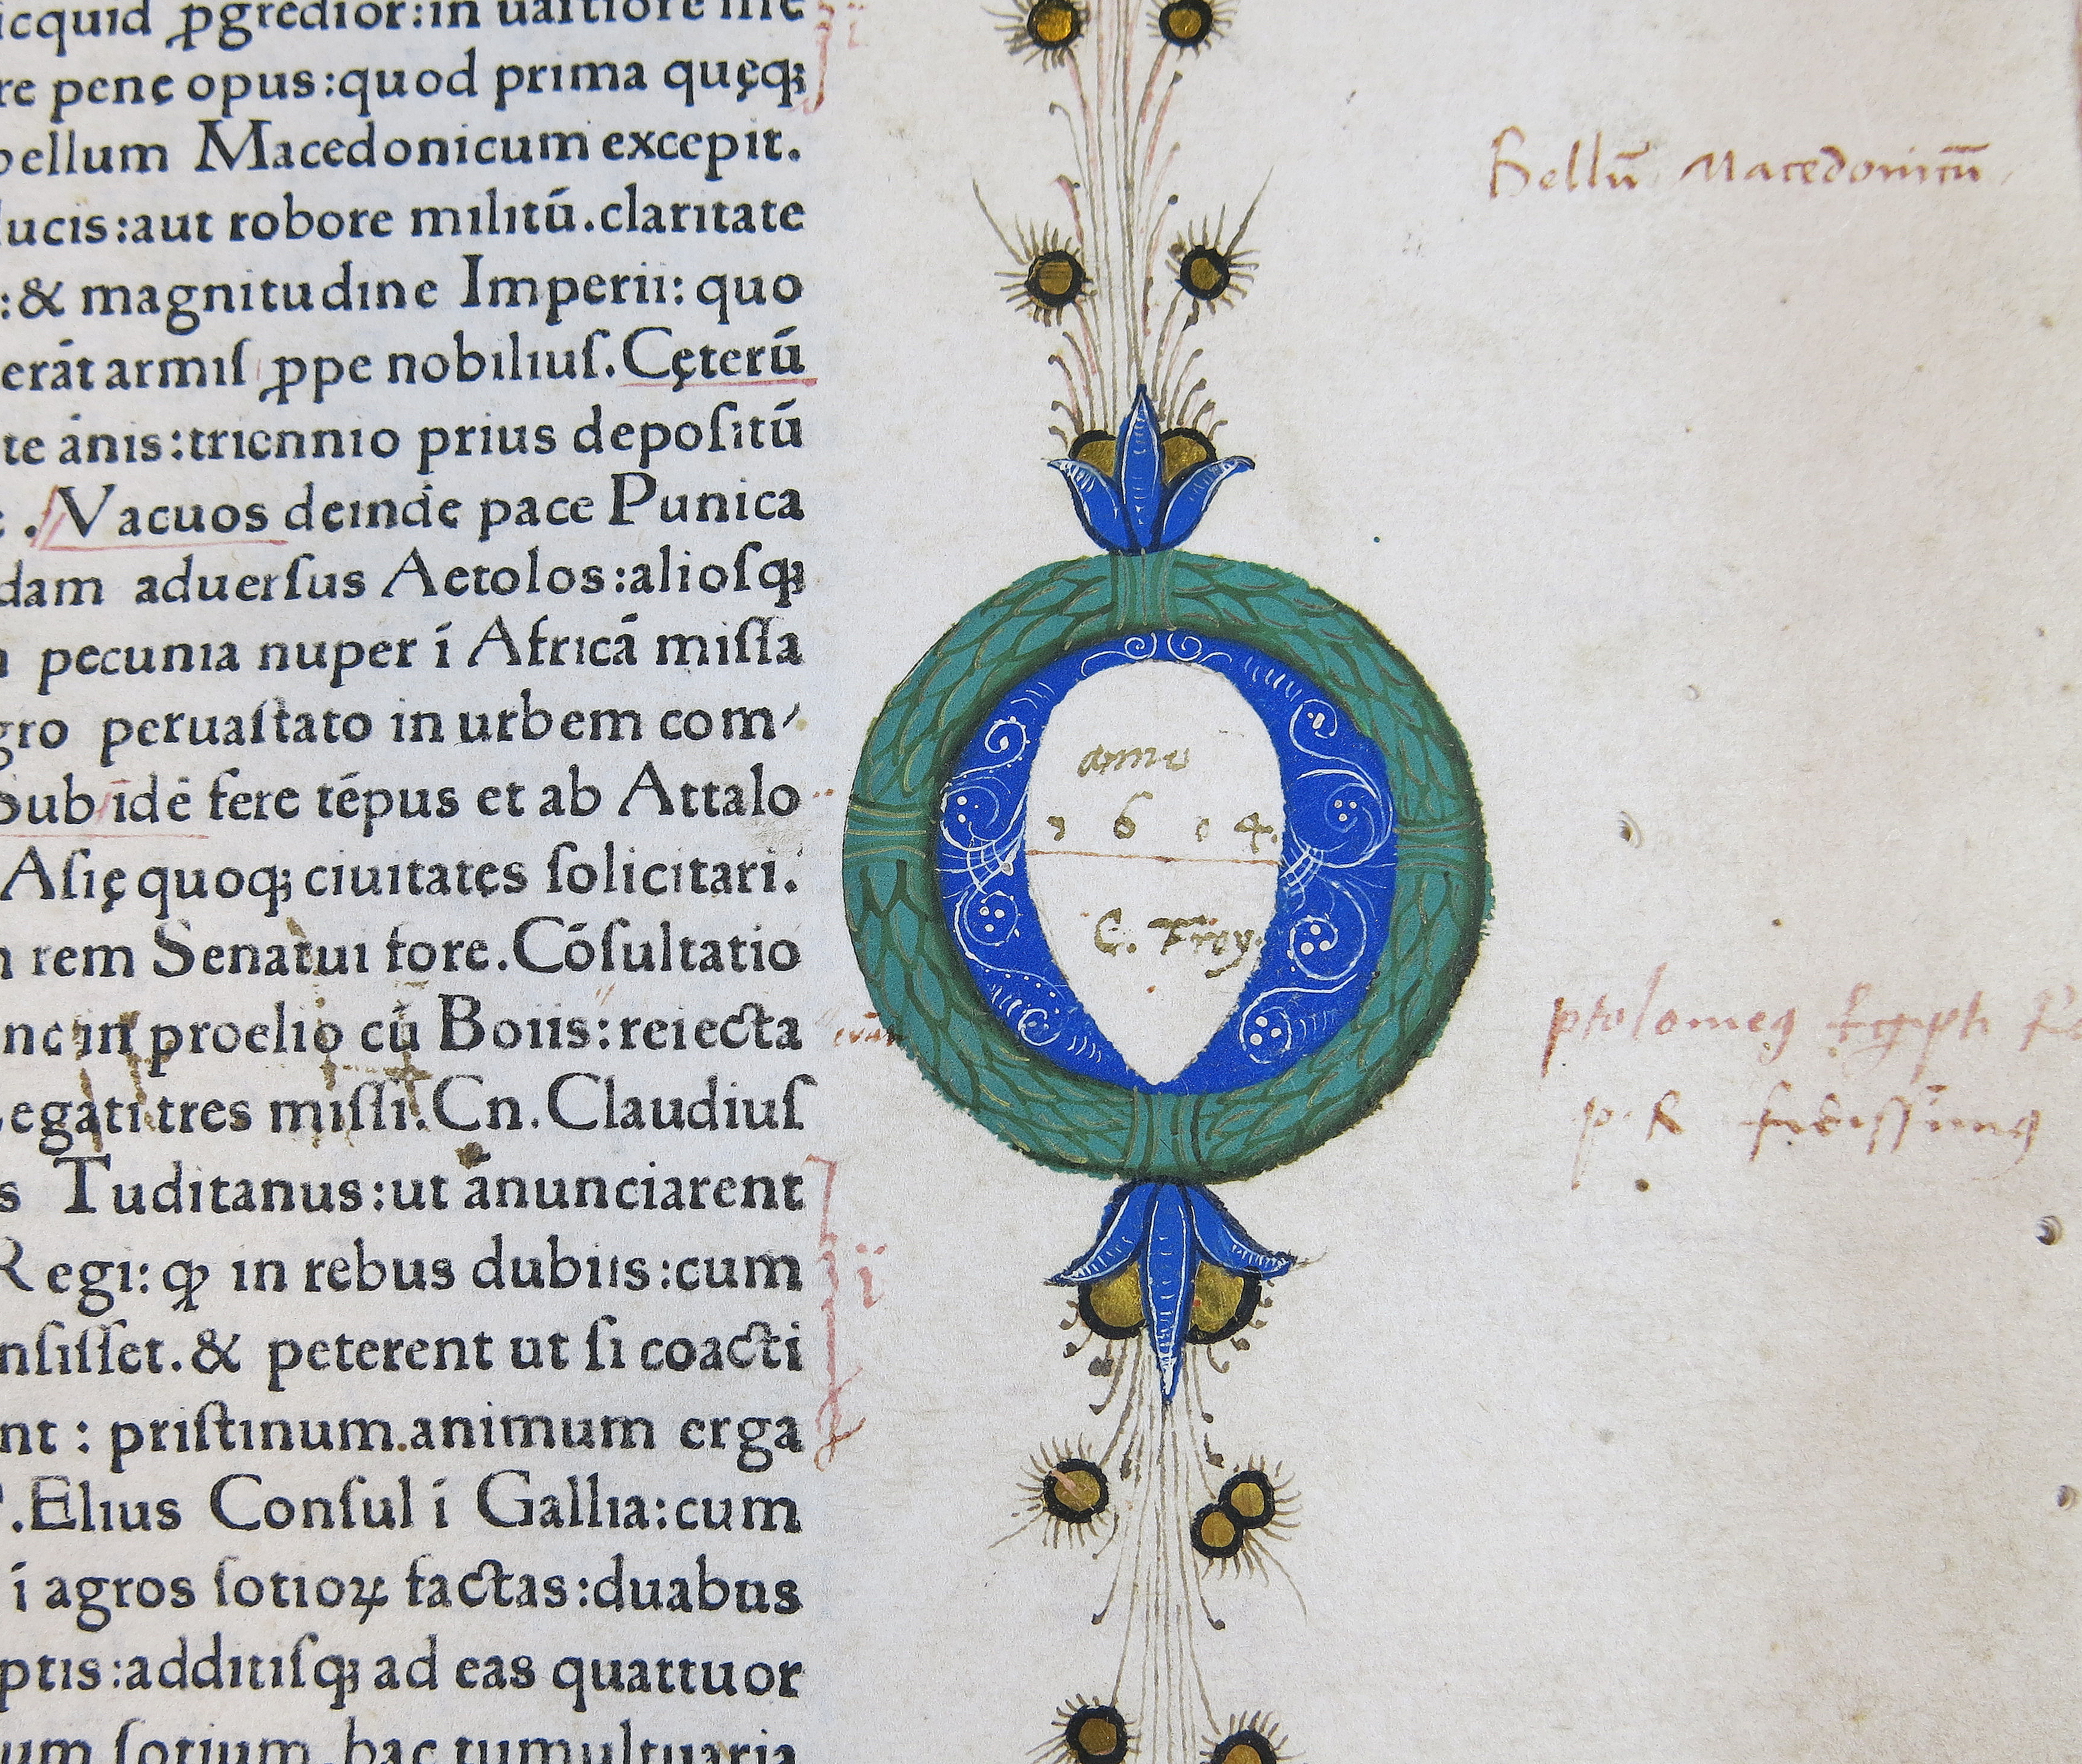 icquid ꝓgredior:in uastiore me
re penę opus:quod prima quęqꝫ
bellum Macedonicum excepit.
ducis:aut robore militū.claritate
:& magnitudine Imperii: quo
erāt armiſ ꝓpe nobiliuſ.Cęterū
te ānis:triennio prius depoſitū
. Vacuos deinde pace Punica
dam aduerſus Aetolos:alioſqꝫ
pecunia nuper ī Africā miſſa
gro peruaſtato in urbem com⸗
Sub idē fere tēpus et ab Attalo
Aſię quoqꝫ ciuitates ſolicitari.
rem Senatui fore.Cōſultatio
nc in proelio cū Boiis:reiecta
Legati tres miſſi.Cn.Claudiuſ
s Tuditanus:ut ānunciarent
Regi: ꝙ in rebus dubiis:cum
nſiſſet.& peterent ut ſi coacti
nt : priſtinum.animum erga
P.Elius Conſul ī Gallia:cum
ī agros ſotioꝝ factas:duabus
ptis:additiſqꝫ ad eas quattuor
um ſotium.hac tumultuaria
Bellū Macedonicū
anno
1 6 1 4.
C. Troy.
ptolomeꝯ Egypti
p. R fidissimꝯ